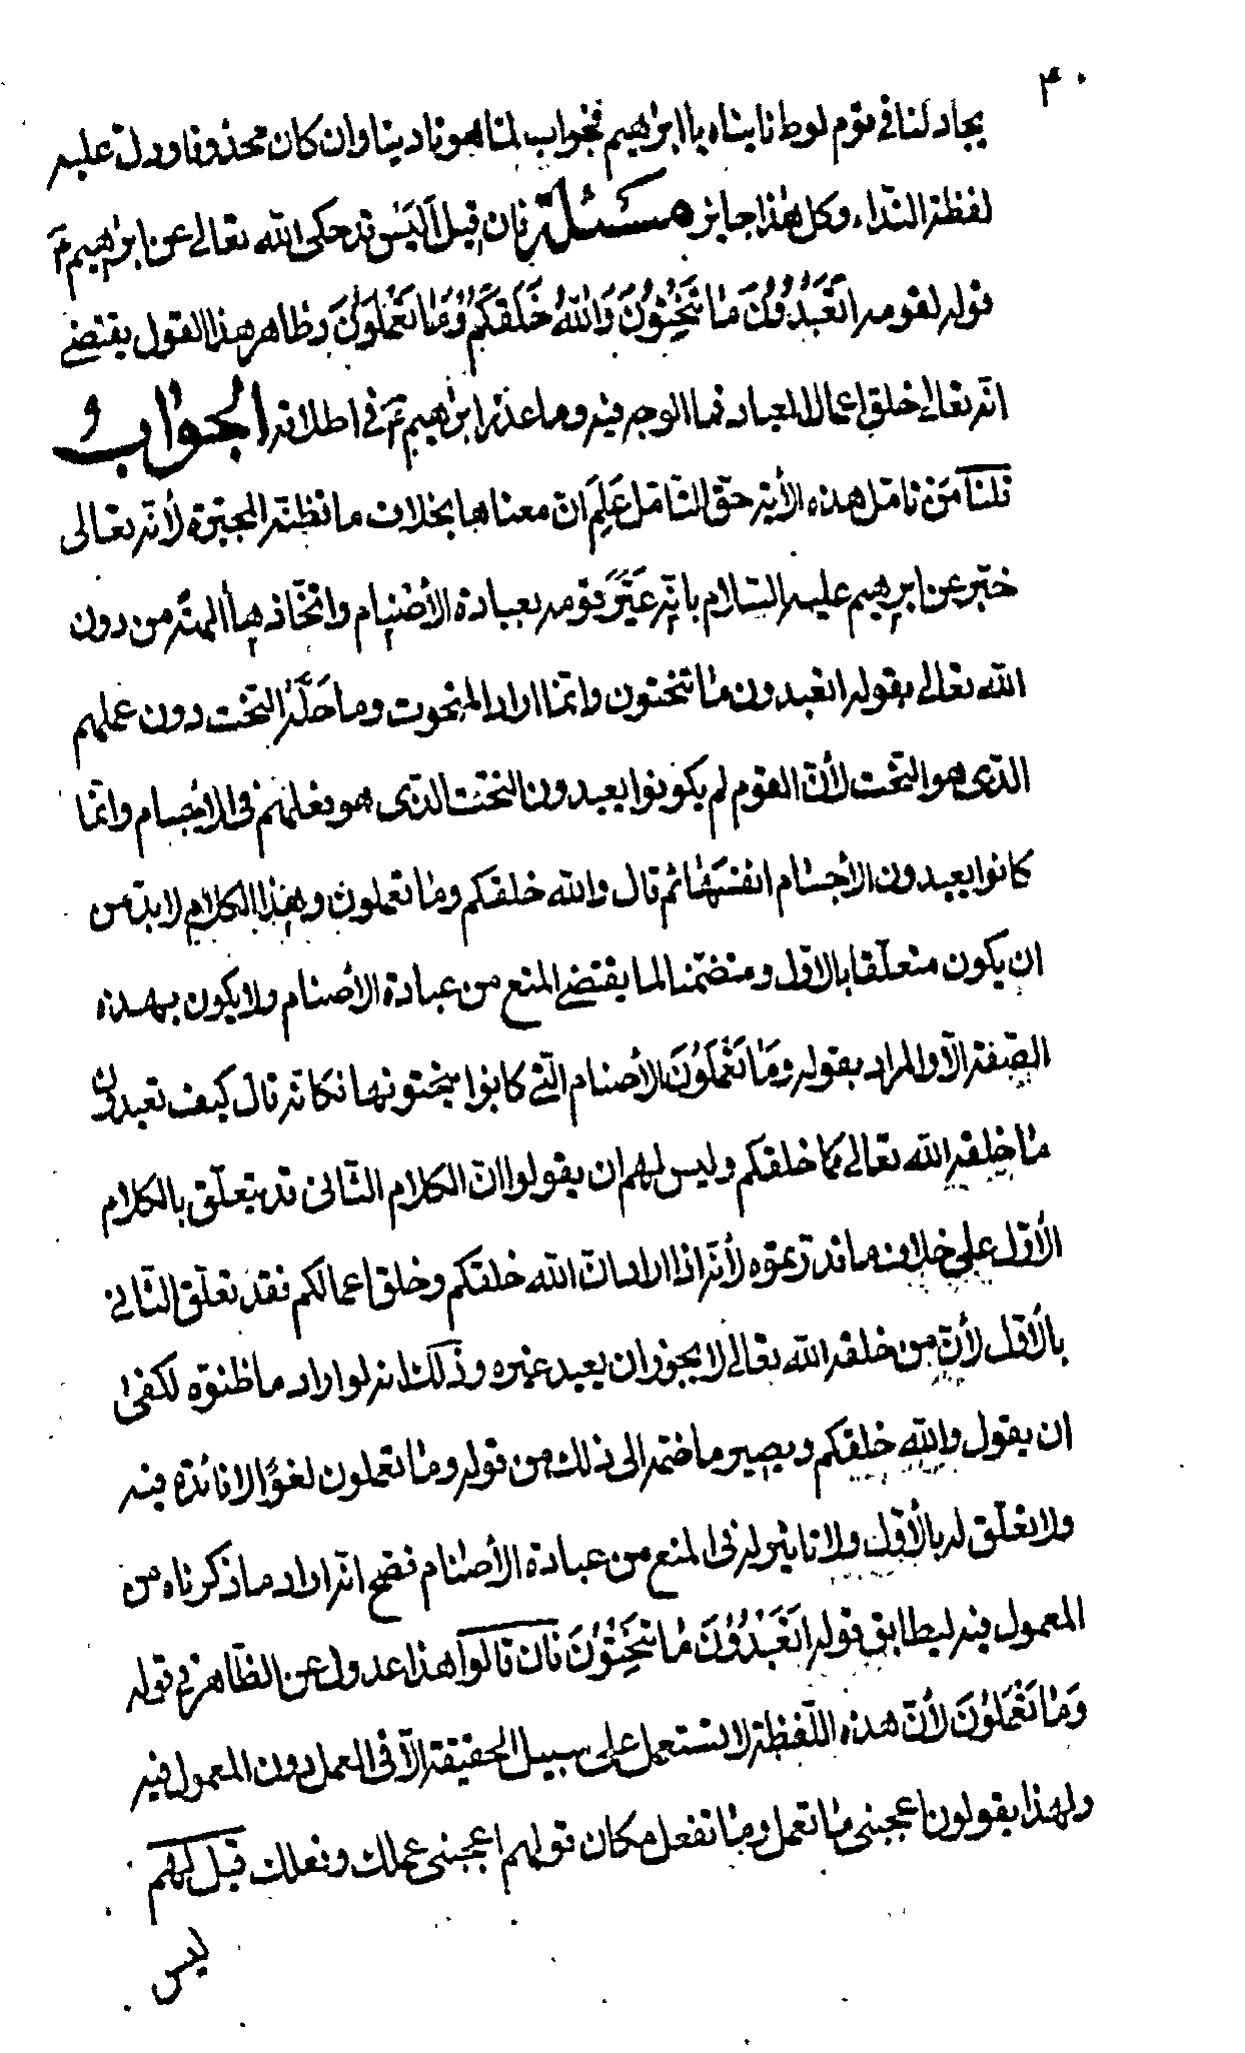 ۴۰
يجادلنا في قوم لوط ناديناه يا ابرٰهيم فجواب لمّا هو ناديناه وان كان محذوفا ودلّ عليه
لفظة النّداء وكل هٰذا جايز مسئلة فان قيل اَليَس قد حكى الله تعالى عن ابرٰهيم ع
قوله لقومه اَتَعْبُدُونَ مٰا تَنْحِتُونَ وَاللهُ خَلَقَكُمْ وَمٰا تَعْمَلُونَ وظاهر هذا القول يقتضي
انّه تعالى خلق اعمال العباد فما الوجه فيه وما عذر ابرٰهيم ع في اطلاقه الجواب و
قلنا مَن تامّل هذه الأية حقّ التامّل عَلِمَ انّ معناها بخلاف ما تظنّه المجبّرة لأنّه تعالى
خبّر عن ابرٰهيم عليه السّلام بانّه عَيَّرَ قومه بعبادة الأصنام واتّخاذها ألهة من دون
الله تعالى بقوله اتعبدون مٰا تنحتون وانّما اراد المنحوت وما حَلَّهُ النّحت دون عملهم
الذّى هو النّحت لأنّ القوم لم يكونوا يعبدون النحت الذّى هو فعلهم في الأجسام وانّما
كانوا يعبدون الأجسام انفسَها ثم قال والله خلقكم ومٰا تعملون وهٰذا الكلام لا بدّ من
ان يكون متعلّقا بالاوّل ومتضمّنا لما يقتضي المنع من عبادة الأصنام ولا يكون بهذه
الصّفة الّا والمراد بقوله وَمٰا تَعْمَلُونَ الأصنام الّتي كانوا ينحتونها فكانّه قال كيف تعبدون
مٰا خلقه الله تعالى كما خلقكم وليس لهم ان يقولوا انّ الكلام الثّانى قد يتعلّق بالكلام
الأوّل على خلاف ما قدّرتموه لأنّه اذا اراد انّ الله خلقكم وخلق اعمالكم فقد تعلّق الثّانى
بالأوّل لأنّ من خلقه الله تعالى لا يجوز ان يعبد غيره وذلك انه لو اراد ما ظنّوه لكفىٰ
ان يقول والله خلقكم ويصير ما ضمّه الى ذلك من قوله ومٰا تعملون لغوًا لا فائدة فيه
ولا تعلّق له بالأوّل ولا تاثير له في المنع من عبادة الأصنام فصحّ انّه اراد ما ذكرناه من
المعمول فيه ليطابق قوله اَتَعْبُدُونَ مٰا تَنْحِتُونَ فان قالوا هذا عدول عن الظّاهر في قوله
وَمٰا تَعْمَلُونَ لأنّ هذه اللّفظة لا تستعمل على سبيل الحقيقة الّا في العمل دون المعمول فيه
ولهذا يقولون اعجبنى مٰا تعمل ومٰا تفعل مكان قولهم اعجبنى عملك وفعلك قيل لهم
ليس